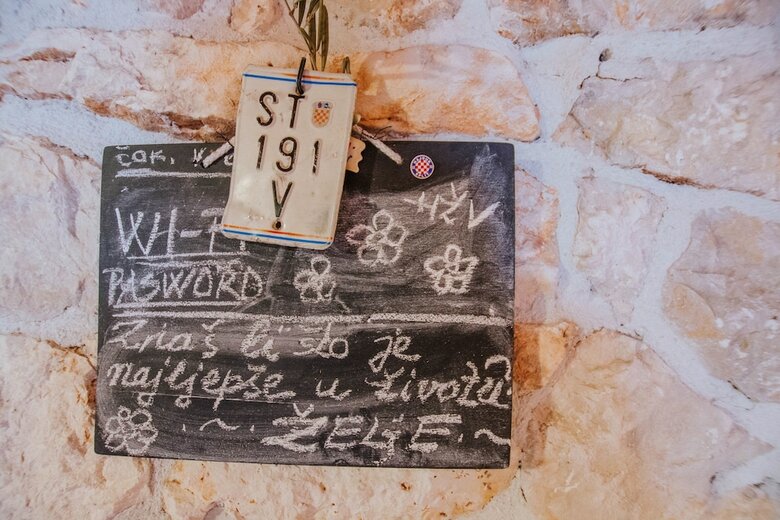 ST
191
V
WI-FI
PASWORD
Znaš li što je
najljepše u životu
~ ŽELJE ~